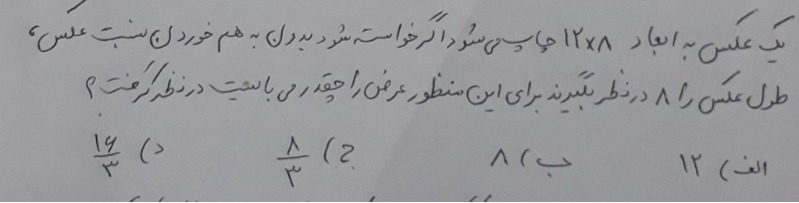 یک عکس به ابعاد ۱۲×۸ چاپ می شود اگر خواسته شود بدون به هم خوردن نسبت عکس،
طول عکس را ۸ در نظر بگیرند برای این منظور عرض را چقدر می بایست در نظر گرفت؟
الف) ۱۲ ب) ۸ ج) ۸/۳ د) ۱۶/۳